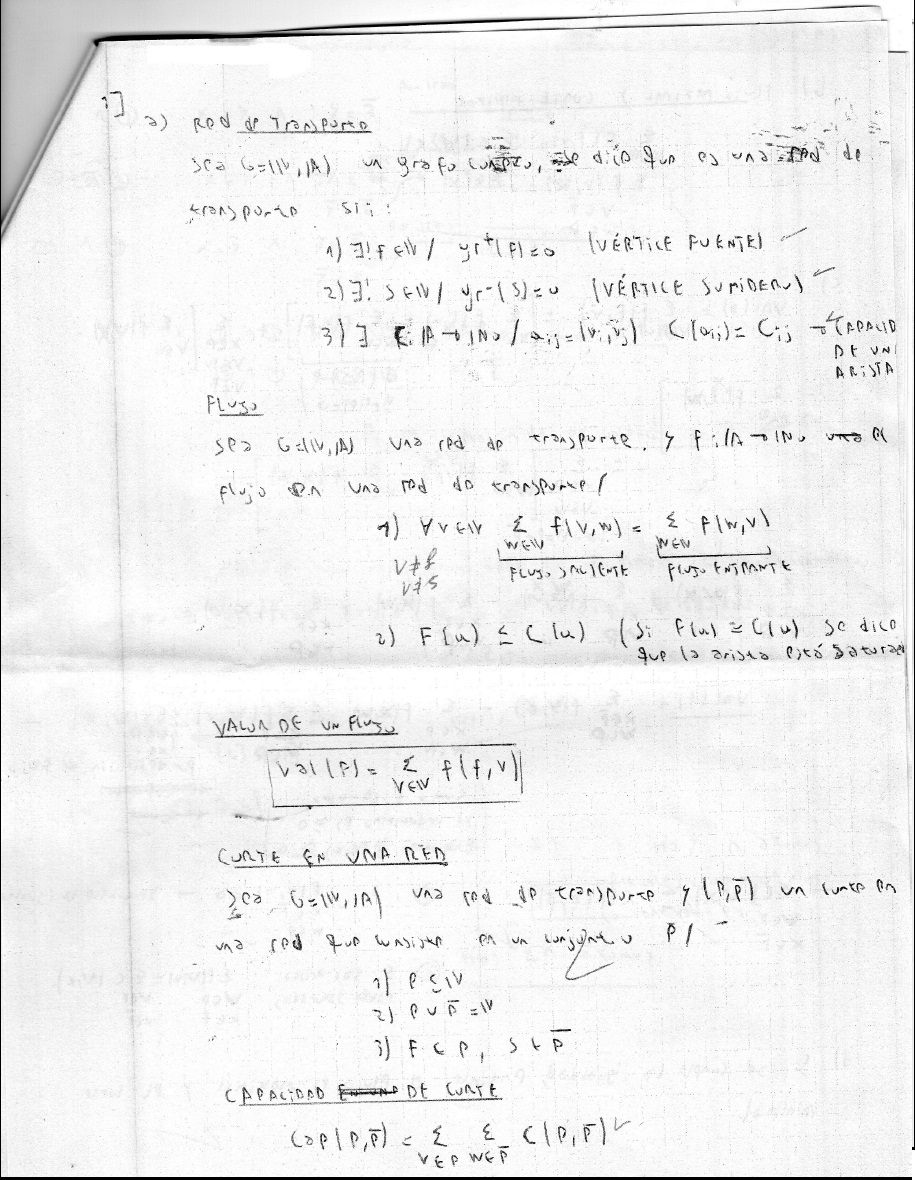 1]
a) Red de Transporte
Sea G=(V,A) un grafo conexo, se dice que es una red de
transporte sii:
1) ∃! f ∈ V / gr⁺(f)=0 (VÉRTICE FUENTE)
2) ∃! s ∈ V / gr⁻(s)=0 (VÉRTICE SUMIDERO)
3) ∃ C: A → N₀ / aij=(vi,vj) C(aij)= Cij → CAPACID
DE UN
ARISTA
Flujo
sea G=(V,A) una red de transporte, y f: A → N₀ una el
flujo en una red de transporte /
1) ∀v∈V Σ f(v,w) = Σ f(w,v)
w∈V w∈V
v≠f FLUJO SALIENTE FLUJO ENTRANTE
v≠s
2) F(u) ≤ C(u) (Si F(u) = C(u) se dice
que la arista está saturad
VALOR DE UN FLUJO
val(f) = Σ f(f,v)
v∈V
CORTE EN UNA RED
Sea G=(V,A) una red de transporte y (P,P̄) un corte en
una red que consiste en un conjunto P /
1) P ⊆ V
2) P ∪ P̄ = V
3) F ∈ P, S ∈ P̄
CAPACIDAD DE CORTE
Cap(P,P̄) = Σ Σ C(P,P̄)
v∈P w∈P̄